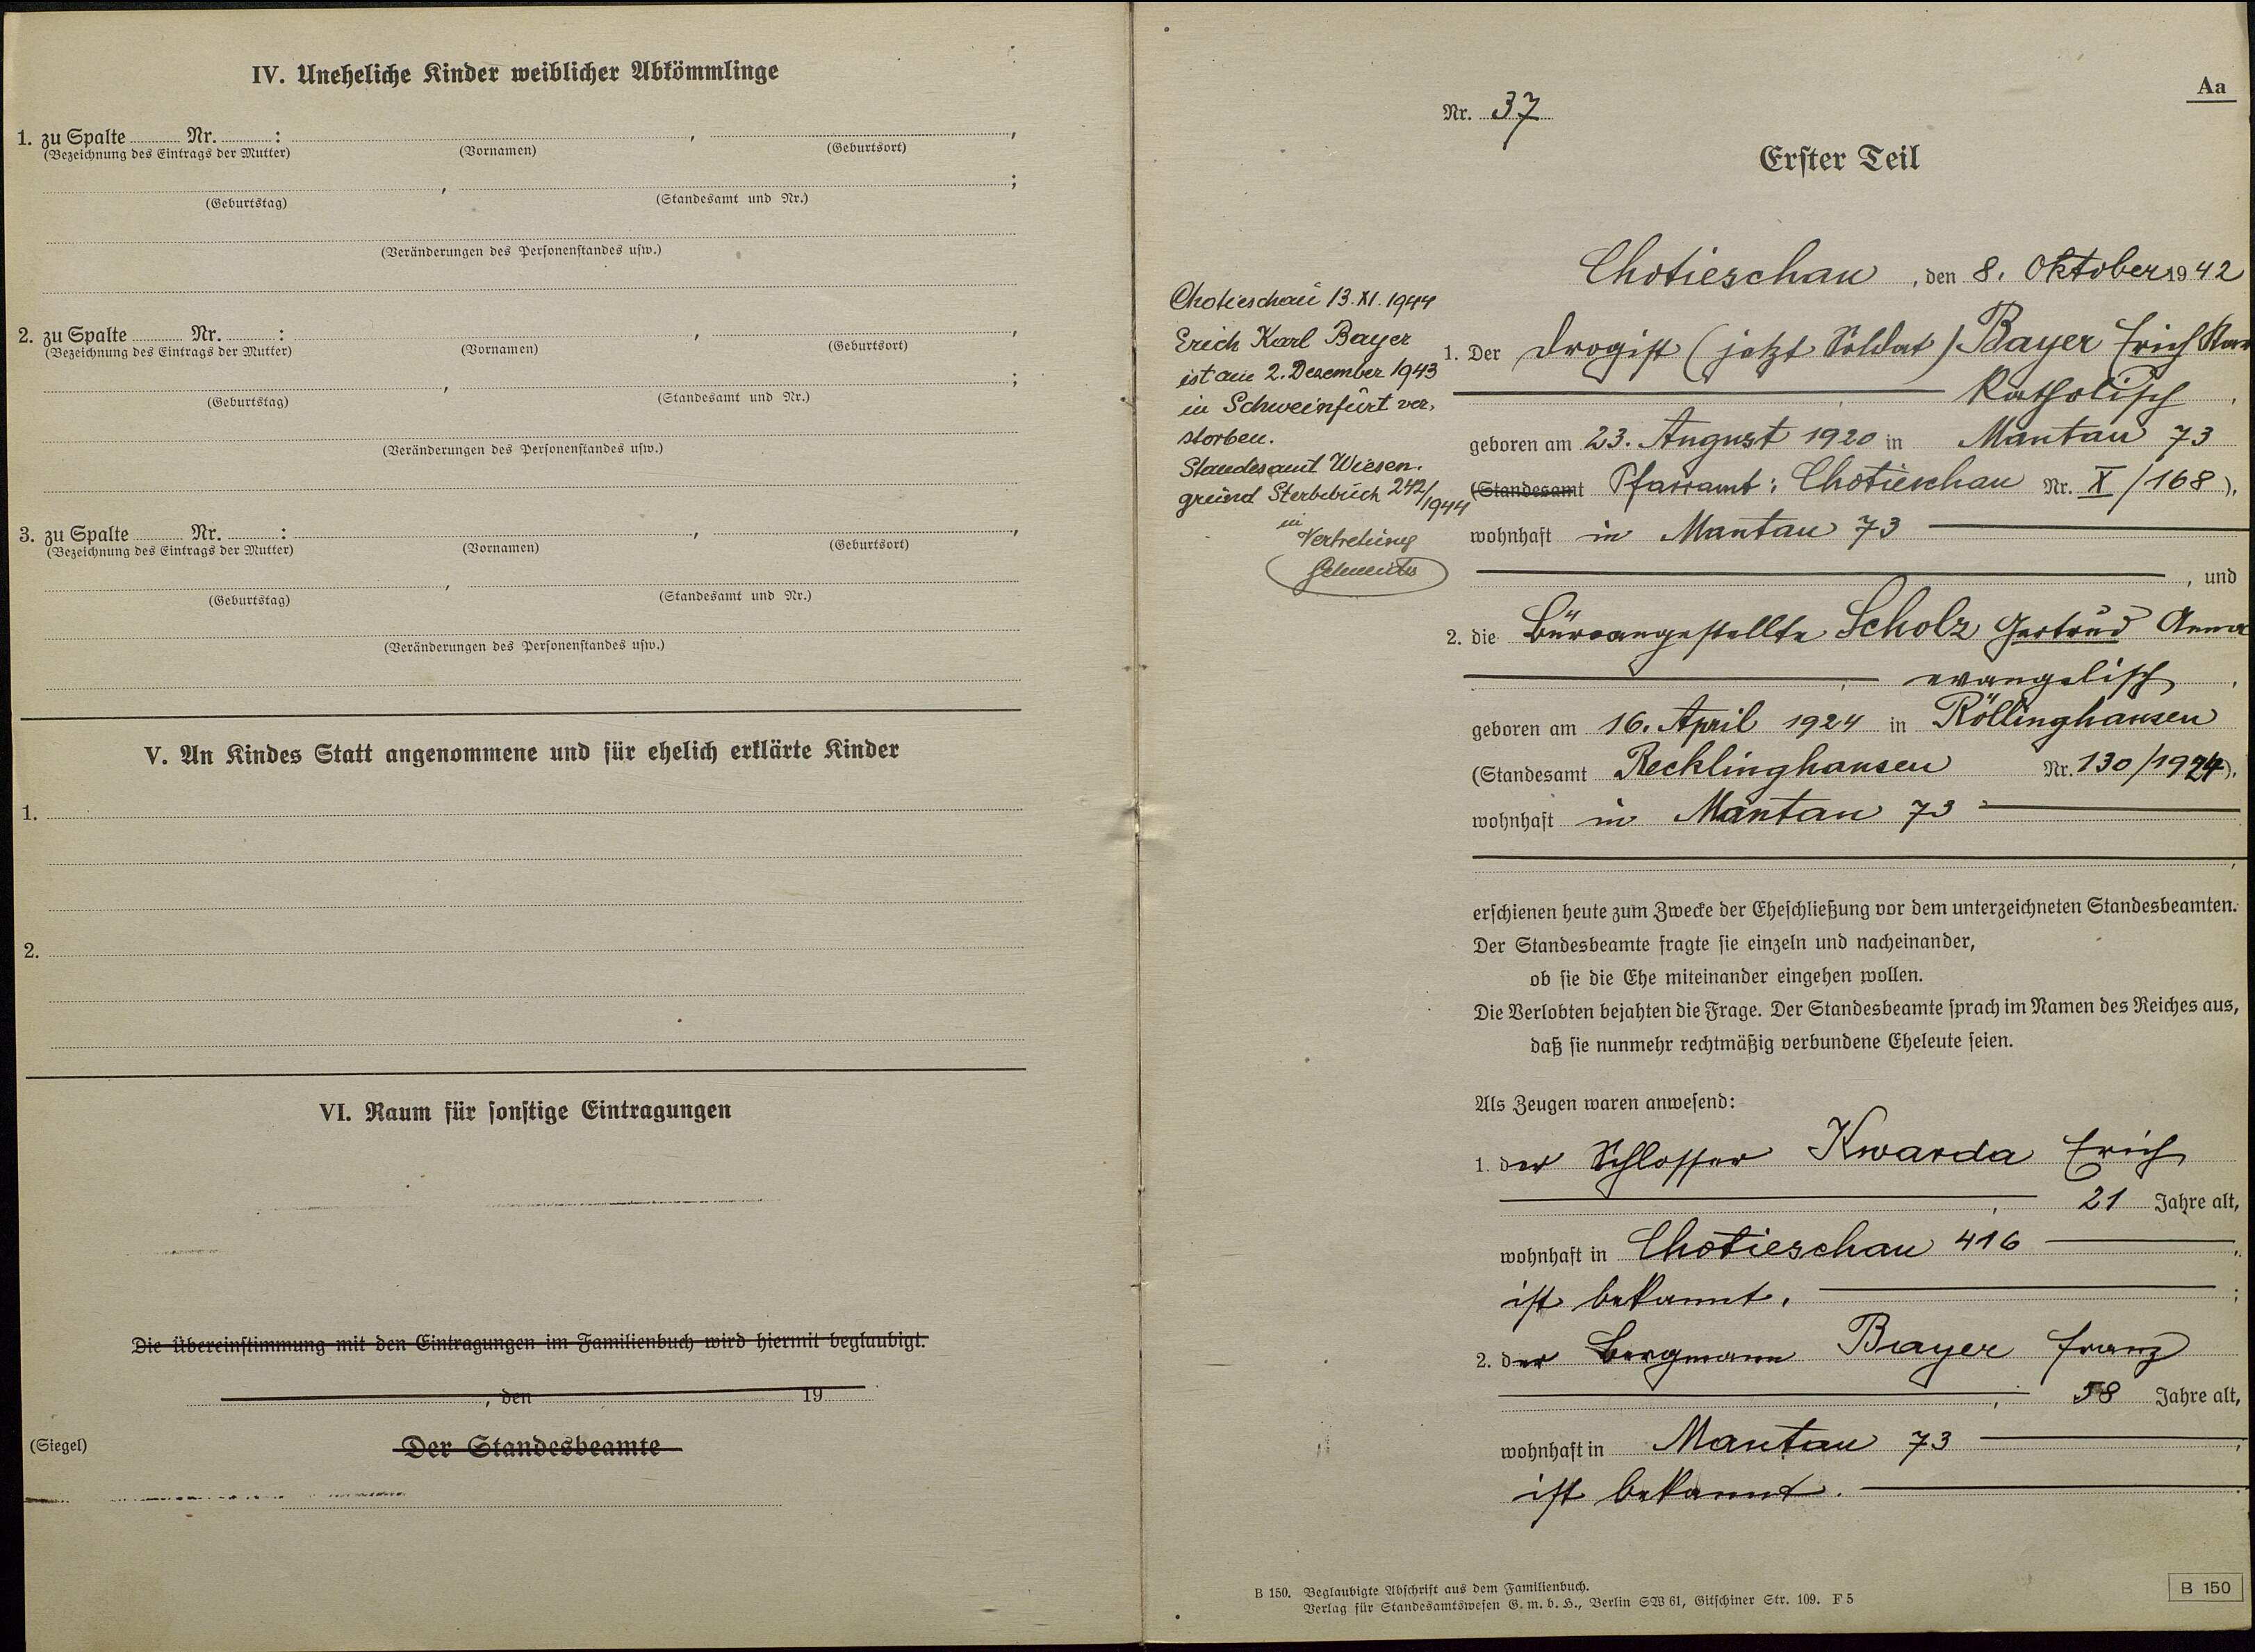 IV. Uneheliche Kinder weiblicher Abkömmlinge
1. zu Spalte ........ Nr. ........ : ........ , ........ ,
(Bezeichnung des Eintrags der Mutter) (Vornamen) (Geburtsort)
........ , ........ ;
(Geburtstag) (Standesamt und Nr.)
(Veränderungen des Personenstandes usw.)
2. zu Spalte ........ Nr. ........ : ........ , ........ ,
(Bezeichnung des Eintrags der Mutter) (Vornamen) (Geburtsort)
........ , ........ ;
(Geburtstag) (Standesamt und Nr.)
(Veränderungen des Personenstandes usw.)
3. zu Spalte ........ Nr. ........ : ........ , ........ ,
(Bezeichnung des Eintrags der Mutter) (Vornamen) (Geburtsort)
........ , ........ ;
(Geburtstag) (Standesamt und Nr.)
(Veränderungen des Personenstandes usw.)
V. An Kindes Statt angenommene und für ehelich erklärte Kinder
1.
2.
VI. Raum für sonstige Eintragungen
Die Übereinstimmung mit den Eintragungen im Familienbuch wird hiermit beglaubigt.
, den 19
(Siegel) Der Standesbeamte
Aa
Nr. 37
Erster Teil
Chotieschau, den 8. Oktober 1942
Chotieschau 13. XI. 1944
Erich Karl Bayer
ist am 2. Dezember 1943
in Schweinfurt ver-
storben.
Standesamt Wiesen-
grund Sterbebuch 242/1944
in
Vertretung
1. Der Drogist (jetzt Soldat) Bayer Erich Kar
katholisch,
geboren am 23. August 1920 in Mantau 73
(Standesamt Pfarramt: Chotieschau Nr. X/168),
wohnhaft in Mantau 73
, und
2. die Büroangestellte Scholz Gertrud Anna
evangelisch,
geboren am 16. April 1924 in Röllinghausen
(Standesamt Recklinghausen Nr. 130/1924),
wohnhaft in Mantau 73
erschienen heute zum Zwecke der Eheschließung vor dem unterzeichneten Standesbeamten.
Der Standesbeamte fragte sie einzeln und nacheinander,
ob sie die Ehe miteinander eingehen wollen.
Die Verlobten bejahten die Frage. Der Standesbeamte sprach im Namen des Reiches aus,
daß sie nunmehr rechtmäßig verbundene Eheleute seien.
Als Zeugen waren anwesend:
1. der Schlosser Kwarda Erich
, 21 Jahre alt,
wohnhaft in Chotieschau 416,
ist bekannt. ;
2. der Bergmann Bayer Franz
, 58 Jahre alt,
wohnhaft in Mantau 73,
ist bekannt.
B 150. Beglaubigte Abschrift aus dem Familienbuch.
Verlag für Standesamtswesen G. m. b. H., Berlin SW 61, Gitschiner Str. 109. F 5
B 150